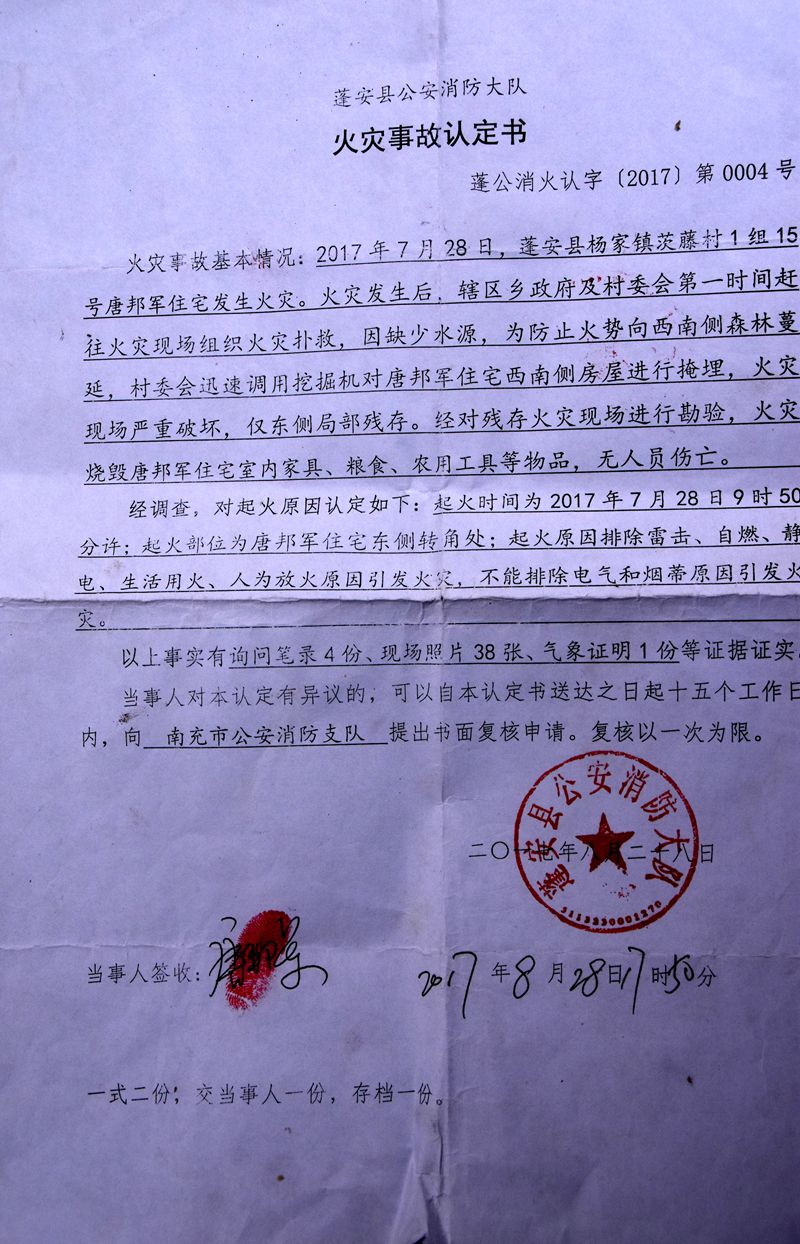 蓬安县公安消防大队
火灾事故认定书
蓬公消火认字〔2017〕第0004号
火灾事故基本情况：2017年7月28日，蓬安县杨家镇茨藤村1组15
号唐邦军住宅发生火灾。火灾发生后，辖区乡政府及村委会第一时间赶
往火灾现场组织火灾扑救，因缺少水源，为防止火势向西南侧森林蔓
延，村委会迅速调用挖掘机对唐邦军住宅西南侧房屋进行掩埋，火灾
现场严重破坏，仅东侧局部残存。经对残存火灾现场进行勘验，火灾
烧毁唐邦军住宅室内家具、粮食、农用工具等物品，无人员伤亡。
经调查，对起火原因认定如下：起火时间为2017年7月28日9时50
分许；起火部位为唐邦军住宅东侧转角处；起火原因排除雷击、自燃、静
电、生活用火、人为放火原因引发火灾，不能排除电气和烟蒂原因引发火
灾。
以上事实有询问笔录4份、现场照片38张、气象证明1份等证据证实。
当事人对本认定有异议的，可以自本认定书送达之日起十五个工作日
内，向 南充市公安消防支队 提出书面复核申请。复核以一次为限。
蓬安县公安消防大队
二〇一七年八月二十八日
5113230001270
当事人签收：唐邦军 2017年8月28日17时50分
一式二份；交当事人一份，存档一份。